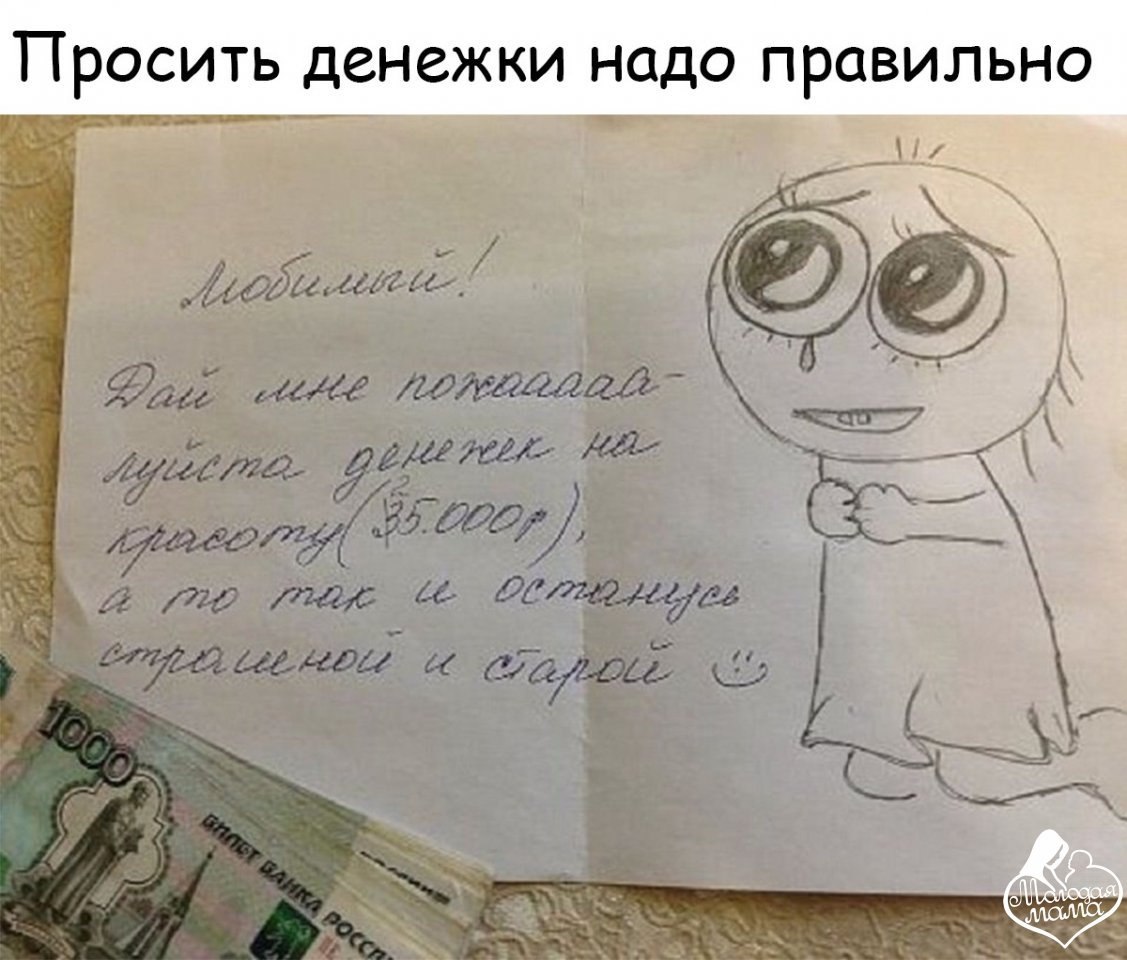 Просить денежки надо правильно
Любимый!
Дай мне пожааааа-
луйста денежек на
красоту (35.000р),
а то так и останусь
страшной и старой
1000
БИЛЕТ БАНКА РОССИИ
Молодая
мама